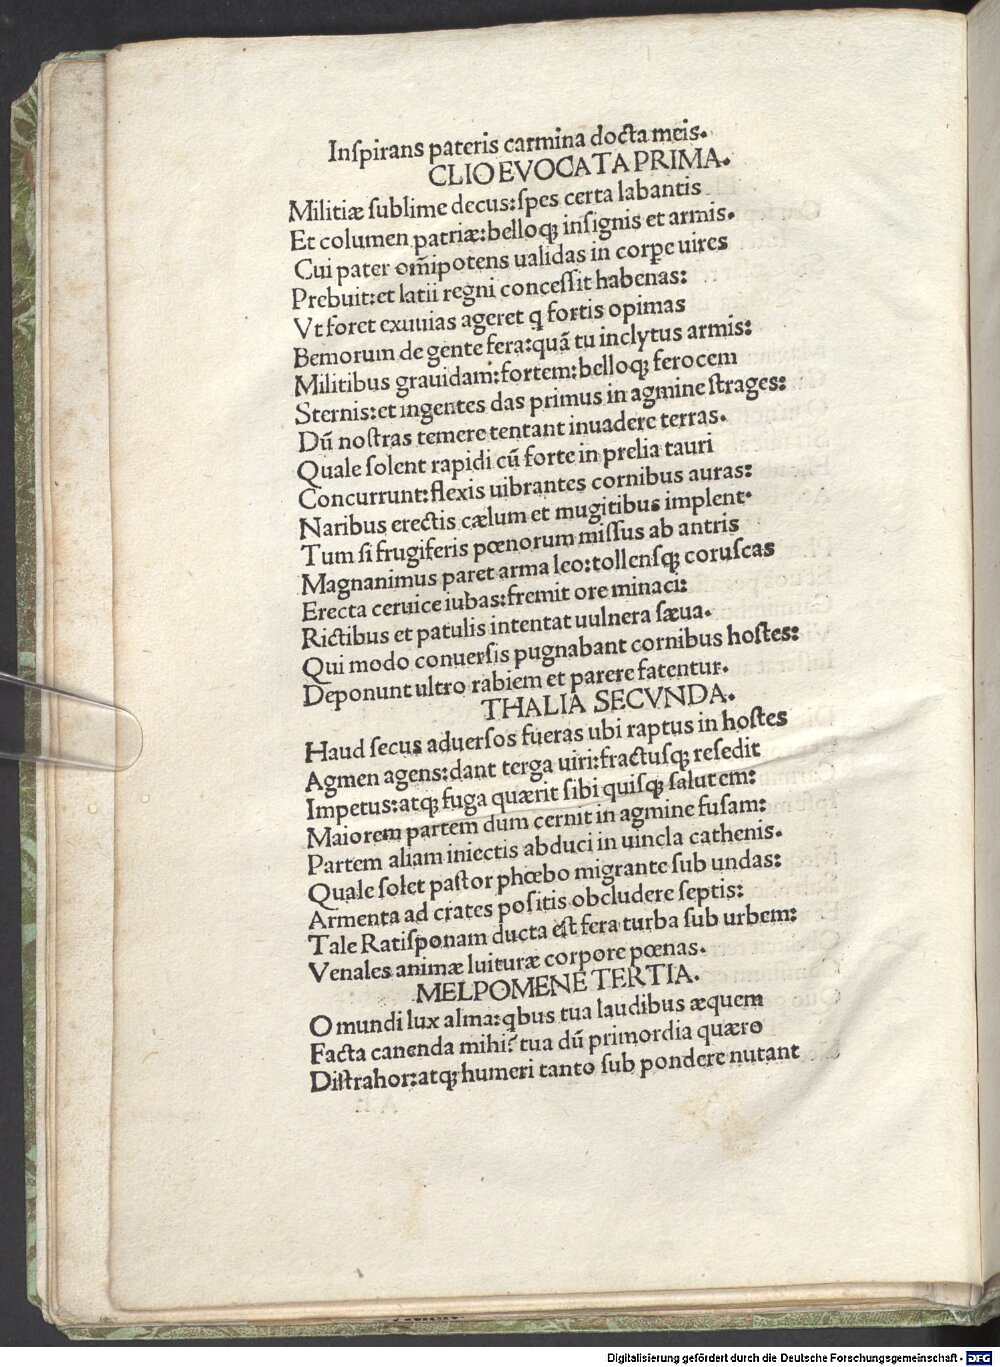 Inſpirans pateris carmina docta meis.
CLIO EVOCATA PRIMA.
Militiæ ſublime decus:ſpes certa labantis
Et columen patriæ:belloqꝫ inſignis et armis.
Cui pater om̃ipotens ualidas in corꝑe uires
Prebuit:et latii regni conceſſit habenas:
Vt foret exuuias ageret q fortis opimas
Bemorum de gente fera:quã tu inclytus armis:
Militibus grauidam:fortem:belloqꝫ ferocem
Sternis:et ingentes das primus in agmine ſtrages:
Dũ noſtras temere tentant inuadere terras.
Quale ſolent rapidi cũ forte in prelia tauri
Concurrunt:flexis uibrantes cornibus auras:
Naribus erectis cælum et mugitibus implent.
Tum ſi frugiferis pœnorum miſſus ab antris
Magnanimus paret arma leo:tollenſqꝫ coruſcas
Erecta ceruice iubas:fremit ore minaci:
Rictibus et patulis intentat uulnera ſæua.
Qui modo conuerſis pugnabant cornibus hoſtes:
Deponunt ultro rabiem et parere fatentur.
THALIA SECVNDA.
Haud ſecus aduerſos fueras ubi raptus in hoſtes
Agmen agens:dant terga uiri:fractuſqꝫ reſedit
Impetus:atqꝫ fuga quærit ſibi quiſqꝫ ſalutem:
Maiorem partem dum cernit in agmine fuſam:
Partem aliam iniectis abduci in uincla cathenis.
Quale ſolet paſtor phœbo migrante ſub undas:
Armenta ad crates poſitis obcludere ſeptis:
Tale Ratiſponam ducta eſt fera turba ſub urbem:
Venales animæ luituræ corpore pœnas.
MELPOMENE TERTIA.
O mundi lux alma:qbus tua laudibus æquem
Facta canenda mihi? tua dũ primordia quæro
Diſtrahor:atqꝫ humeri tanto ſub pondere nutant
Digitalisierung gefördert durch die Deutsche Forschungsgemeinschaft - DFG